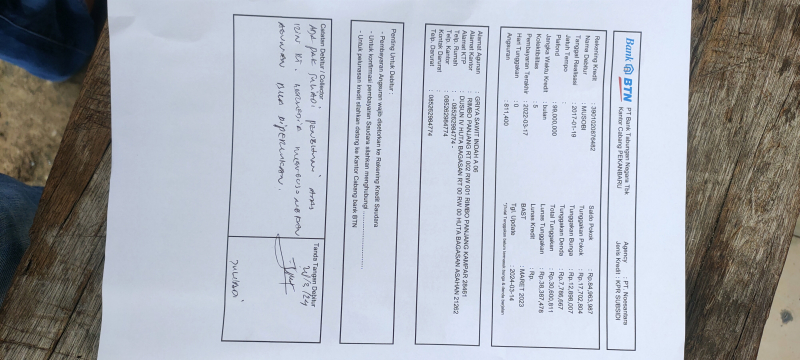 Bank BTN
PT Bank Tabungan Negara Tbk
Kantor Cabang PEKANBARU
Agency : PT. Noesantara
Jenis Kredit : KPR SUBSIDI
Rekening Kredit : 3901020876482
Nama Debitur : MUSOBI
Tanggal Realisasi : 2017-01-19
Jatuh Tempo :
Plafond : 99,000,000
Jangka Waktu Kredit : bulan
Kolektibilitas : 5
Pembayaran Terakhir : 2022-03-17
Hari Tunggakan : 0
Angsuran : 811,400
Saldo Pokok : Rp.84,983,987
Tunggakan Pokok : Rp.17,702,804
Tunggakan Bunga : Rp.12,898,007
Tunggakan Denda : Rp.7,786,667
Total Tunggakan : Rp.30,600,811
Lunas Tunggakan : Rp.38,387,478
Lunas Kredit : Rp.
BAST : MARET 2023
Tgl. Update : 2024-03-14
Alamat Agunan : GRIYA SAWIT INDAH A 06
Alamat Kantor : RIMBO PANJANG RT 002 RW 001 RIMBO PANJANG KAMPAR 28461
Alamat KTP : DUSUN IV HUTA BAGASAN RT 00 RW 00 HUTA BAGASAN ASAHAN 21262
Telp. Rumah : - 085262964774
Telp. Kantor : 085262964774 -
Kontak Darurat :
Telp. Darurat : 085262964774
Penting Untuk Debitur :
- Pembayaran Angsuran wajib disetorkan ke Rekening Kredit Saudara
- Untuk konfirmasi pembayaran Saudara silahkan menghubungi
- Untuk pelunasan kredit silahkan datang ke Kantor Cabang bank BTN
Catatan Debitur / Collector
Tanda Tangan Debitur